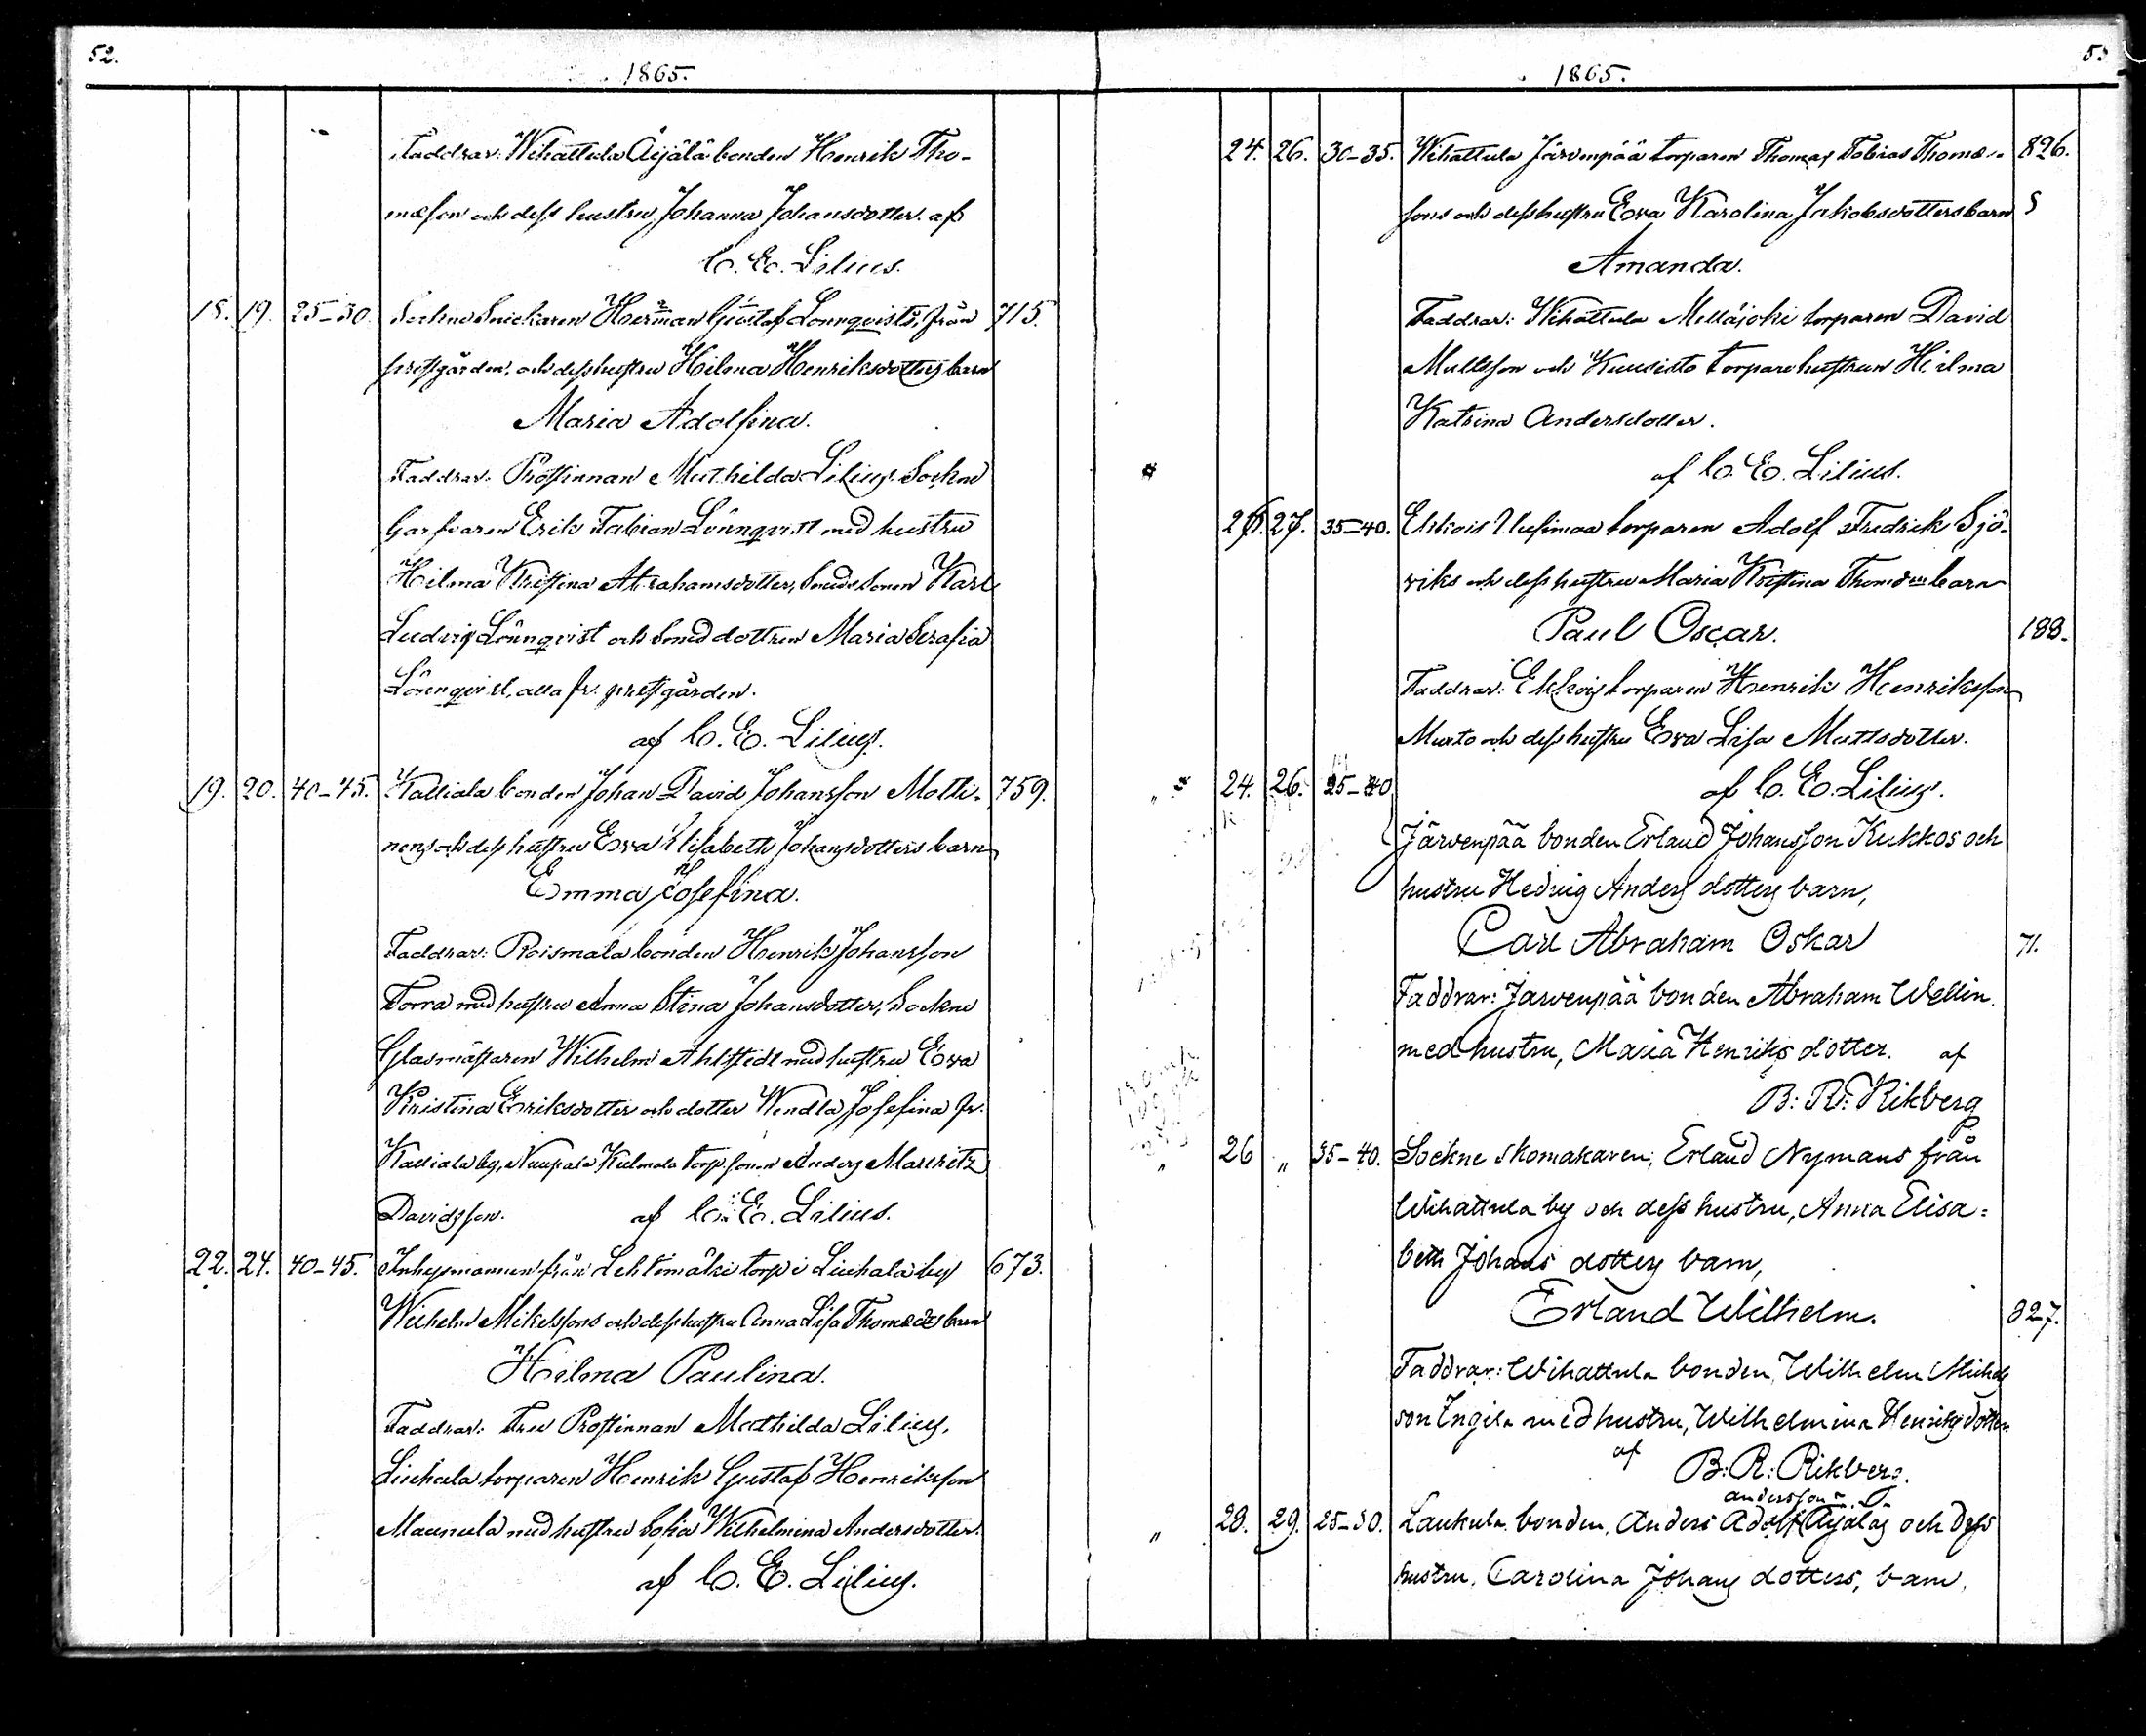 52.
1865.
Faddrar: Wihattula Äijälä bonden Henrik Tho-
mæson och dess hustru Johanna Johansdotter. af
C. E. Lilius.
18. 19. 25-30. Sockne Snickaren Herman Gustaf Lönnqvists, från 715.
prestgården, och dess hustru Hilma Henriksdotters barn
Maria Adolfina.
Faddrar. Prostinnan Mathilda Lilius. Sockne
Garfvaren Erik Fabian Lönnqvist med hustru
Hilma Kristina Abrahamsdotter, Smedssonen Karl
Ludvig Lönnqvist och Smeddottren Maria Serafia
Lönnqvist, alla fr. prestgården.
af C. E. Lilius.
19. 20. 40-45. Kalliala bonden Johan David Johansson Molli- 759.
nens och dess hustru Eva Elisabeth Johansdotters barn
Emma Josefina.
Faddrar: Roismala bonden Henrik Johansson
Torra med hustru Anna Stina Johansdotter, Sockne
Glasmästaren Wilhelm Ahlstedt med hustru Eva
Kristina Eriksdotter och dotter Wendla Josefina fr.
Kalliala by, Nuupala Kulmala torp. sonen Anders Mauritz
Davidsson. af C. E. Lilius.
22. 24. 40-45. Inhysmannen från Lehtimäki torp i Liuhala by 673.
Wilhelm Mikelssons och dess hustru Anna Lisa Thomædrs barn
Hilma Paulina.
Faddrar: Fru Prostinnan Mathilda Lilius,
Liuhala torparen Henrik Gustaf Henriksson
Maunula med hustru Sofia Wilhelmina Andersdotter.
af C. E. Lilius.
53
1865.
24. 26. 30-35. Wihattula Järvenpää torparen Thomas Tobias Thomæ- 826.
sons och dess hustru Eva Karolina Jakobsdotters barn
Amanda.
Faddrar: Wihattula Myllyjoki torparen David
Mattsson och Kuusisto torpare hustrun Hilma
Katrina Andersdotter.
af C. E. Lilius.
26. 27. 35-40. Ekkois Uusimaa torparen Adolf Fredrik Sjö-
viks och dess hustru Maria Kristina Thomædrs barn
Paul Oscar. 188.
Faddrar: Ekkois torparen Henrik Henriksson
Murto och dess hustru Eva Lisa Mattsdotter.
af C. E. Lilius.
" 24. 26. 35-40
Järvenpää bonden Erland Johansson Kukkos och
hustru Hedvig Anders dotters barn,
Carl Abraham Oskar 71.
Faddrar: Järvenpää bonden Abraham Wellin.
med hustru, Maria Henriks dotter. af
B: R: Rikberg
" 26 " 35-40. Sockne skomakaren, Erland Nymans från
Wihattula by och dess hustru, Anna Elisa=
beth Johans dotters barn,
Erland Wilhelm. 827.
Faddrar: Wihattula bonden, Wilhelm Michels
son Ingila med hustru, Wilhelmina Henriks dotter.
af B: R: Rikberg.
andersson
" 28. 29. 25-30. Laukula bonden, Anders Adolf Äyäläs och dess
hustru, Carolina Johans dotters, barn,